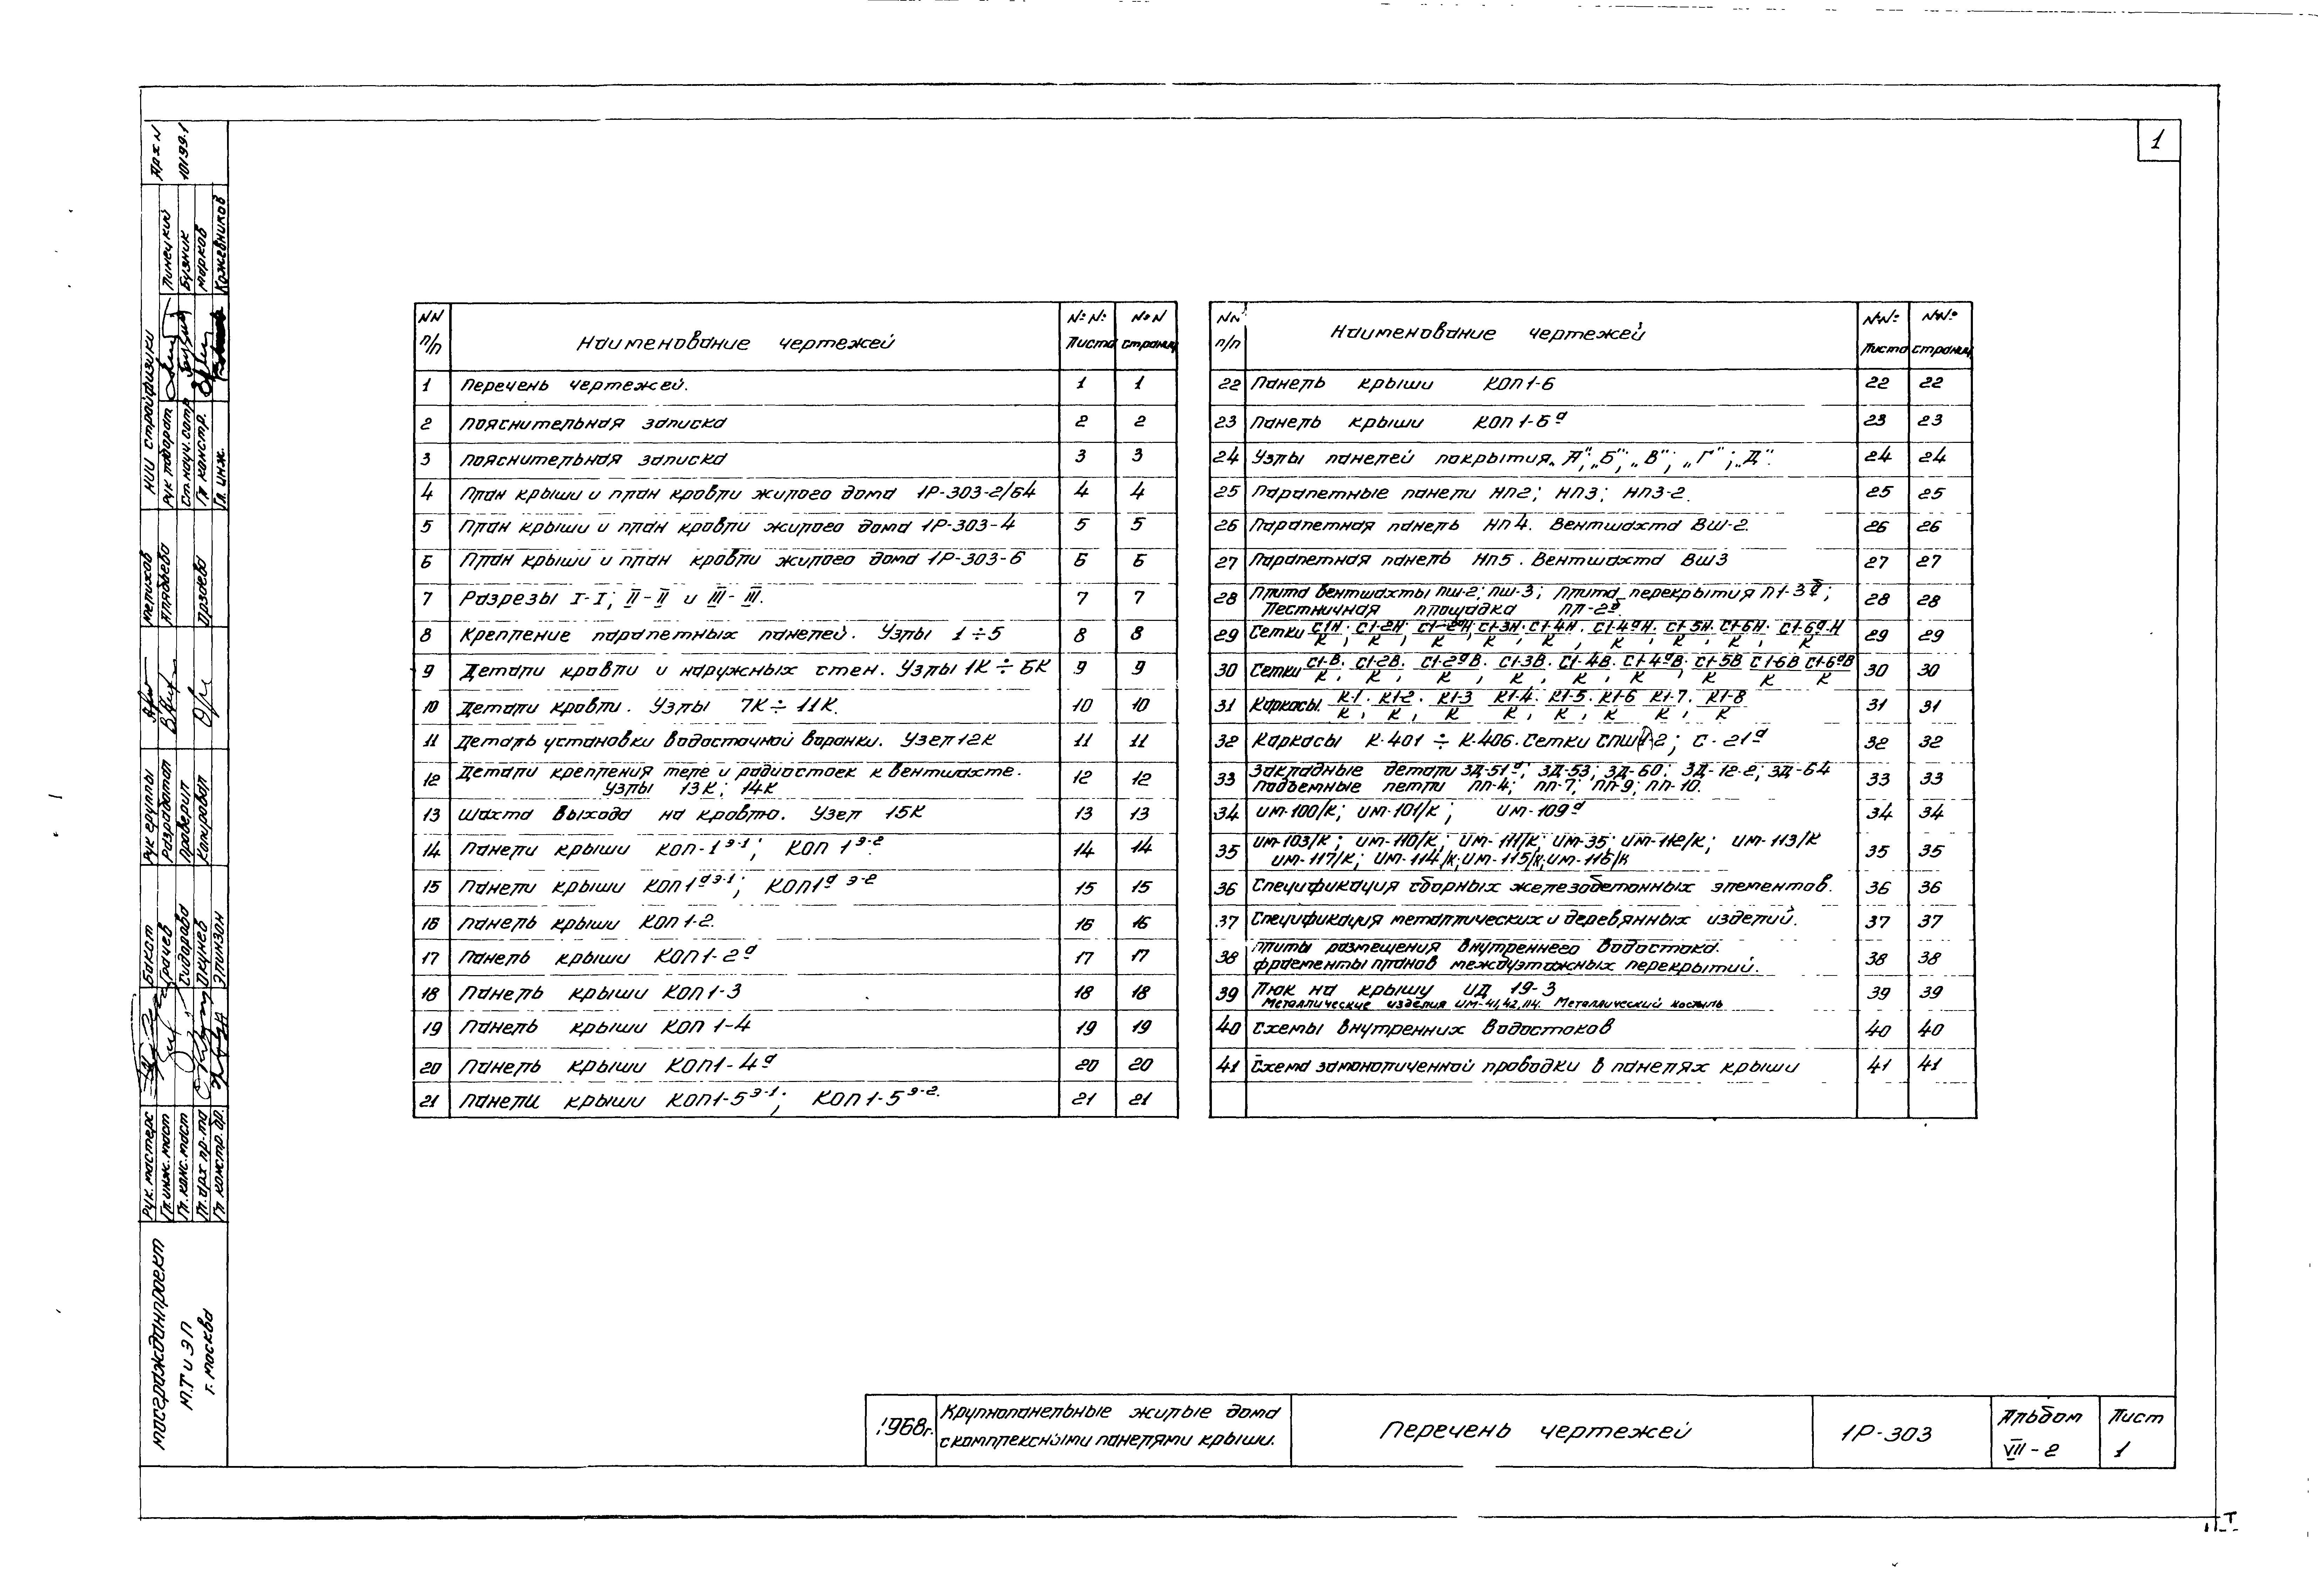 1
NN п/п Наименование чертежей №№ листа №№ страниц
1 Перечень чертежей. 1 1
2 Пояснительная записка 2 2
3 Пояснительная записка 3 3
4 План крыши и план кровли жилого дома 1Р-303-2/64 4 4
5 План крыши и план кровли жилого дома 1Р-303-4 5 5
6 План крыши и план кровли жилого дома 1Р-303-6 6 6
7 Разрезы I-I; II-II и III-III. 7 7
8 Крепление парапетных панелей. Узлы 1÷5 8 8
9 Детали кровли и наружных стен. Узлы 1К÷6К 9 9
10 Детали кровли. Узлы 7К÷11К. 10 10
11 Деталь установки водосточной воронки. Узел 12К 11 11
12 Детали крепления теле и радиостоек к вентшахте. 12 12
Узлы 13К; 14К
13 Шахта выхода на кровлю. Узел 15К 13 13
14 Панели крыши КОП-1э-1; КОП 1э-2 14 14
15 Панели крыши КОП1аэ-1; КОП1а э-2 15 15
16 Панель крыши КОП1-2. 16 16
17 Панель крыши КОП1-2а 17 17
18 Панель крыши КОП1-3 18 18
19 Панель крыши КОП 1-4 19 19
20 Панель крыши КОП1-4а 20 20
21 Панели крыши КОП1-5э-1; КОП1-5э-2. 21 21
NN п/п Наименование чертежей №№ листа №№ страниц
22 Панель крыши КОП1-6 22 22
23 Панель крыши КОП1-6а 23 23
24 Узлы панелей покрытия „А"; „Б"; „В"; „Г"; „Д". 24 24
25 Парапетные панели НП2; НП3; НП3-2. 25 25
26 Парапетная панель НП4. Вентшахта ВШ-2. 26 26
27 Парапетная панель НП5. Вентшахта ВШ3 27 27
28 Плита вентшахты ПШ-2; ПШ-3; Плита перекрытия П1-3; 28 28
Лестничная площадка ЛП-2
29 Сетки С1Н/К; С1-2Н/К; С1-2аН/К; С1-3Н/К; С1-4Н/К; С1-4аН/К; С1-5Н/К; С1-6Н/К; С1-6а-Н/К 29 29
30 Сетки С1-В/К; С1-2В/К; С1-2аВ/К; С1-3В/К; С1-4В/К; С1-4аВ/К; С1-5В/К С1-6В/К С1-6аВ/К 30 30
31 Каркасы К-1/К; К1-2/К; К1-3/К К1-4/К; К1-5/К; К1-6/К К1-7/К; К1-8/К 31 31
32 Каркасы К-401÷К-406. Сетки 2; С-21а 32 32
33 Закладные детали ЗД-51а; ЗД-53; ЗД-60; ЗД-12-2; ЗД-64 33 33
Подъемные петли ПП-4; ПП-7; ПП-9; ПП-10.
34 ИМ-100/К; ИМ-101/К; ИМ-109а 34 34
35 ИМ-103/К; ИМ-110/К; ИМ-111/К; ИМ-35; ИМ-112/К; ИМ-113/К 35 35
ИМ-117/К; ИМ-114/К; ИМ-115/К; ИМ-116/К
36 Спецификация сборных железобетонных элементов. 36 36
37 Спецификация металлических и деревянных изделий. 37 37
38 Плиты размещения внутреннего водостока. 38 38
Фрагменты планов междуэтажных перекрытий.
39 Люк на крышу ИД 19-3 39 39
Металлические изделия ИМ-41,42,114. Металлический костыль
40 Схемы внутренних водостоков 40 40
41 Схема замоноличенной проводки в панелях крыши 41 41
Арх N 10199-1
НИИ стройфизики
Рук лаборат Линецкий
Ст.науч.сотр Бузник
Гл констр. Марков
Гл. инж. Кожевников
Рук группы Мелихов
Разработал Алябьева
Проверил
Копировал Дрзаева
Рук. мастерс Бакст
Гл.инж.маст Грачев
Гл.конс.маст Сидорова
Гл.арх пр-та Окунев
Гл констр. бр. Элинзон
Мосгражданпроект
М.Т и ЭП
г. Москва
1968г. Крупнопанельные жилые дома
с комплексными панелями крыши.
Перечень чертежей
1Р-303
Альбом VII-2
Лист 1